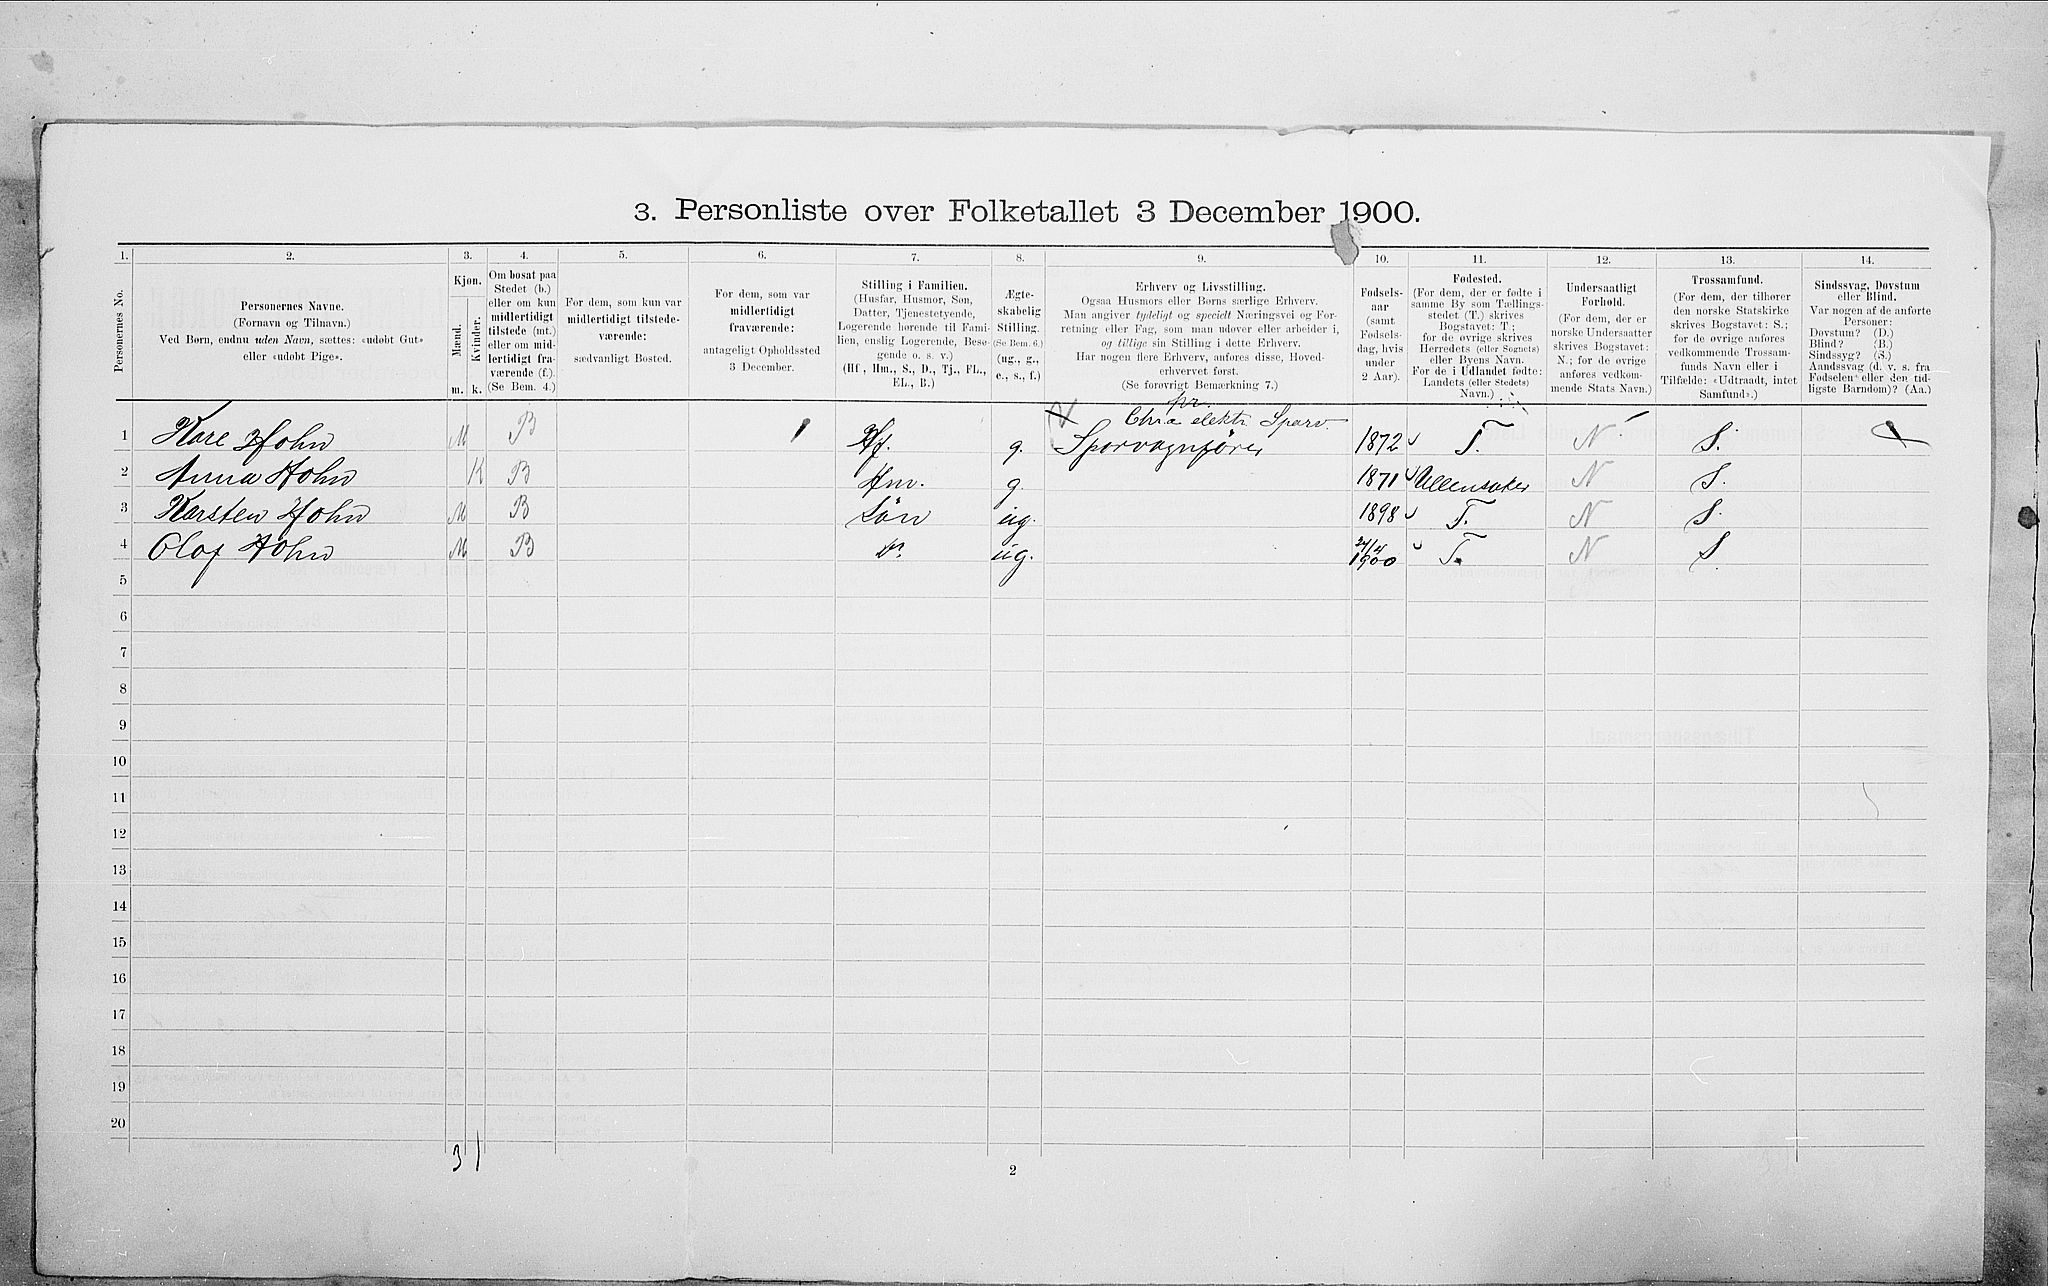 3. Personliste over Folketallet 3 December 1900.
1. 2. 3. 4. 5. 6. 7. 8. 9. 10. 11. 12. 13. 14.
Personernes No.
Personernes Navne.
(Fornavn og Tilnavn.)
Ved Børn, endnu uden Navn, sættes: «udøbt Gut»
eller «udøbt Pige».
Kjøn.
Mænd.
Kvinder.
m. k.
Om bosat paa
Stedet (b.)
eller om kun
midlertidigt
tilstede (mt.)
eller om mid-
lertidigt fra-
værende (f.).
(Se Bem. 4.)
For dem, som kun var
midlertidigt tilstede-
værende:
sædvanligt Bosted.
For dem, som var
midlertidigt
fraværende:
antageligt Opholdssted
3 December.
Stilling i Familien.
(Husfar, Husmor, Søn,
Datter, Tjenestetyende,
Logerende hørende til Fami-
lien, enslig Logerende, Besø-
gende o. s. v.)
(Hf, Hm., S., D., Tj., FL.,
EL., B.)
Ægte-
skabelig
Stilling.
(Se Bem. 6.)
(ug., g.,
e., s., f.)
Erhverv og Livsstilling.
Ogsaa Husmors eller Børns særlige Erhverv.
Man angiver tydeligt og specielt Næringsvei og For-
retning eller Fag, som man udøver eller arbeider i,
og tillige sin Stilling i dette Erhverv.
Har nogen flere Erhverv, anføres disse, Hoved-
erhvervet først.
(Se forøvrigt Bemærkning 7.)
Fødsels-
aar
(samt
Fødsels-
dag, hvis
under
2 Aar).
Fødested.
(For dem, der er fødte i
samme By som Tællings-
stedet (T.) skrives
Bogstavet: T.;
for de øvrige skrives
Herredets (eller Sognets)
eller Byens Navn.
For de i Udlandet fødte:
Landets (eller Stedets)
Navn.)
Undersaatligt
Forhold.
(For dem, der er
norske Undersaatter
skrives Bogstavet:
N.; for de øvrige
anføres vedkom-
mende Stats Navn.)
Trossamfund.
(For dem, der tilhører
den norske Statskirke
skrives Bogstavet: S.;
for de øvrige anføres
vedkommende Trossam-
funds Navn eller i
Tilfælde: «Udtraadt, intet
Samfund».)
Sindssvag, Døvstum
eller Blind.
Var nogen af de anførte
Personer:
Døvstum? (D.)
Blind? (B.)
Sindssyg? (S.)
Aandssvag (d. v. s. fra
Fødselen eller den tid-
ligste Barndom)? (Aa.)
pr.
Chra elektr Sporv.
1 Kare Hohn M B Hf. g. Sporvognfører 1872 T. N S.
2 Anna Hohn K B Hm. g. 1871 Ullensaker N S.
3 Karsten Hohn M B Søn ug. 1898 T. N S.
4 Olaf Hohn M B Do ug. 1900 T. N S.
5
6
7
8
9
10
11
12
13
14
15
16
17
18
19
20
3 1
2